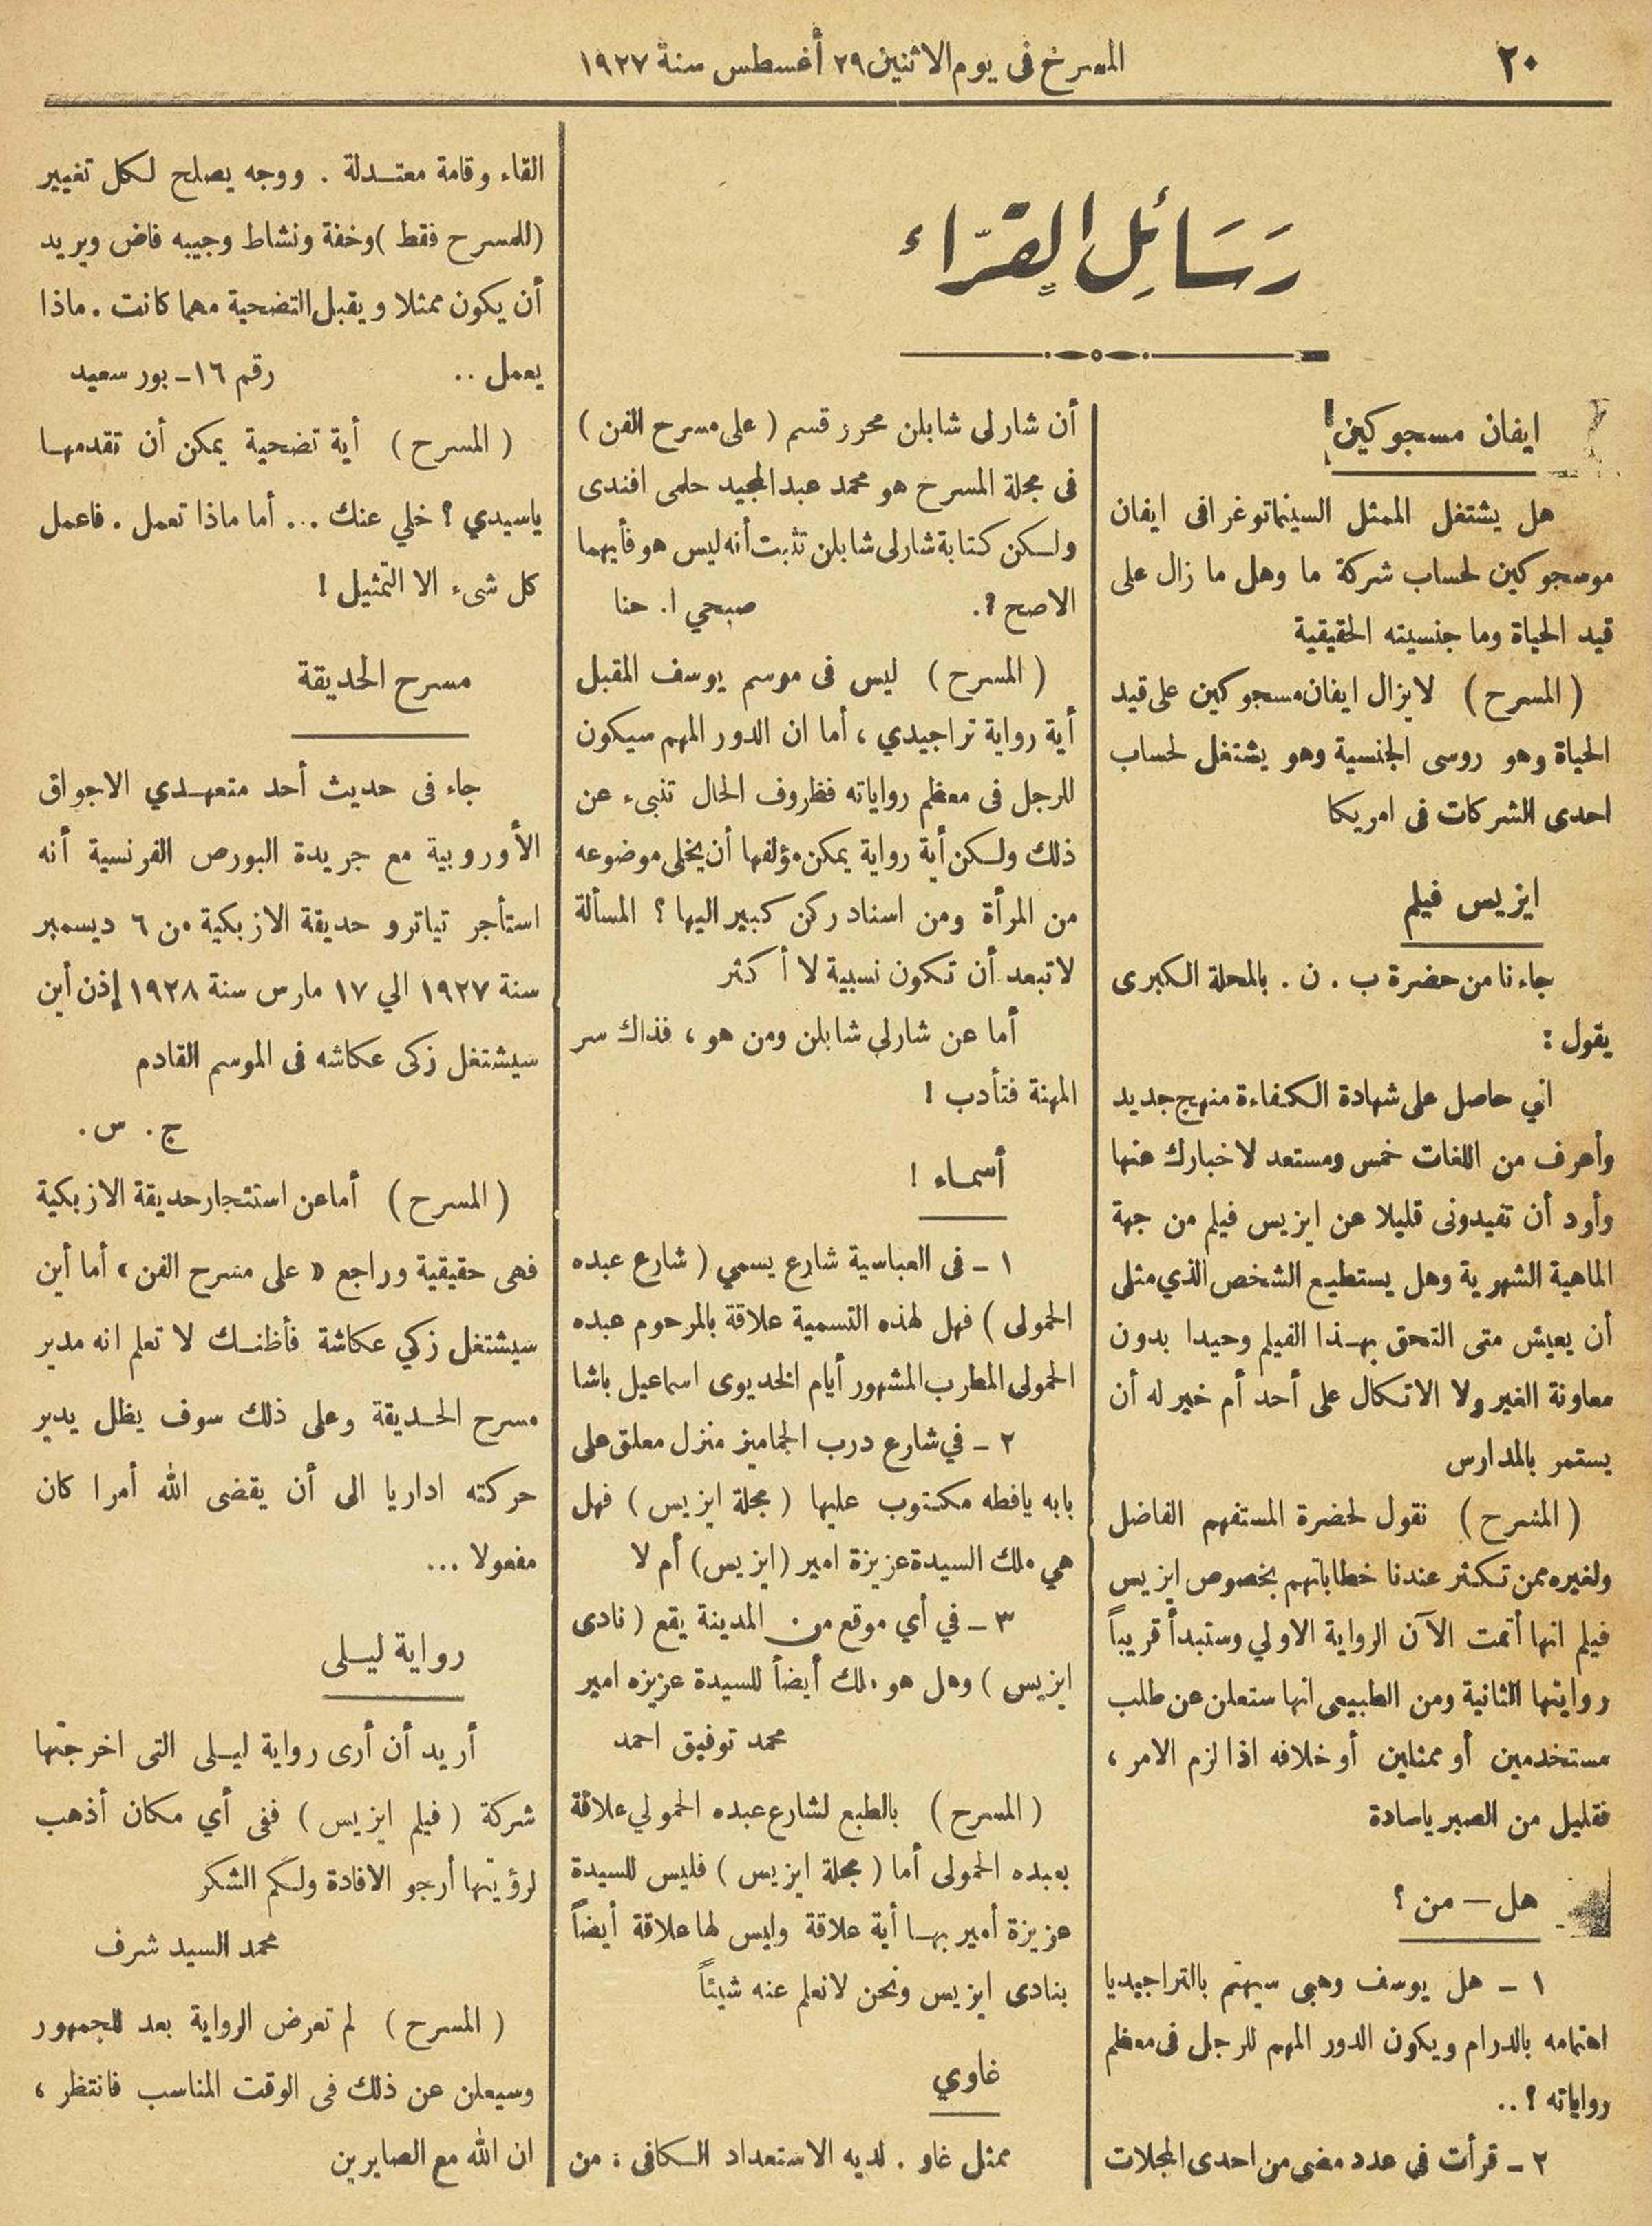 ٢٠
المسرح فى يوم الاثنين ٢٩ أغسطس سنة ١٩٢٧
رَسَائِل القرّاء
ايفان مسجوكين!
هل يشتغل الممثل السينماتوغرافى ايفان
موسجوكين لحساب شركة ما وهل ما زال على
قيد الحياة وما جنسيته الحقيقية
( المسرح ) لايزال ايفان مسجوكين على قيد
الحياة وهو روسى الجنسية وهو يشتغل لحساب
احدى الشركات فى امريكا
ايزيس فيلم
جاءنا من حضرة ب . ن . بالمحلة الكبرى
يقول :
اني حاصل على شهادة الكفاءة منهج جديد
وأعرف من اللغات خمس ومستعد لاخبارك عنها
وأود أن تفيدونى قليلا عن ايزيس فيلم من جهة
الماهية الشهرية وهل يستطيع الشخص الذي مثلى
أن يعيش متى التحق بهذا الفيلم وحيدا بدون
معاونة الغير ولا الاتكال على أحد أم خير له أن
يستمر بالمدارس
( المسرح ) نقول لحضرة المستفهم الفاضل
ولغيره ممن تكثر عندنا خطاباتهم بخصوص ايزيس
فيلم انها أتمت الآن الرواية الاولي وستبدأ قريباً
روايتها الثانية ومن الطبيعى انها ستعلن عن طلب
مستخدمين أو ممثلين أو خلافه اذا لزم الامر ،
فقليل من الصبر ياسادة
هل – من ؟
١ - هل يوسف وهبى سيهتم بالتراجيديا
اهتمامه بالدرام ويكون الدور المهم للرجل فى معظم
رواياته ؟ ..
٢ - قرأت في عدد مضى من احدى المجلات
أن شارلى شابلن محرر قسم ( على مسرح الفن )
فى مجلة المسرح هو محمد عبد المجيد حلمى افندى
ولكن كتابة شارلى شابلن تثبت أنه ليس هو فأيهما
الاصح ؟. صبحي ا. حنا
( المسرح ) ليس فى موسم يوسف المقبل
أية رواية تراجيدي ، أما ان الدور المهم سيكون
للرجل فى معظم رواياته فظروف الحال تنبىء عن
ذلك ولكن أية رواية يمكن مؤلفها أن يخلى موضوعه
من المرأة ومن اسناد ركن كبير اليها ؟ المسألة
لاتبعد أن تكون نسبية لا أكثر
أما عن شارلي شابلن ومن هو ، فذاك سر
المهنة فتأدب !
أسماء !
١ - فى العباسية شارع يسمي ( شارع عبده
الحمولى ) فهل لهذه التسمية علاقة بالمرحوم عبده
الحمولى المطرب المشهور أيام الخديوى اسماعيل باشا
٢ - في شارع درب الجماميز منزل معلق على
بابه يافطه مكتوب عليها ( مجلة ايزيس ) فهل
هي ملك السيدة عزيزة امير (ايزيس) أم لا
٣ - في أي موقع من المدينة يقع ( نادى
ايزيس ) وهل هو ملك أيضاً للسيدة عزيزه امير
محمد توفيق احمد
( المسرح ) بالطبع لشارع عبده الحمولي علاقة
بعبده الحمولى أما ( مجلة ايزيس ) فليس للسيدة
عزيزة أمير بها أية علاقة وليس لها علاقة أيضاً
بنادى ايزيس ونحن لانعلم عنه شيئاً
غاوي
ممثل غاو . لديه الاستعداد الكافى : من
القاء وقامة معتدلة . ووجه يصلح لكل تغيير
(للمسرح فقط ) وخفة ونشاط وجيبه فاض ويريد
أن يكون ممثلا ويقبل التضحية مهما كانت . ماذا
يعمل .. رقم ١٦ - بور سعيد
( المسرح ) أية تضحية يمكن أن تقدمها
ياسيدي ؟ خلي عنك ... أما ماذا تعمل . فاعمل
كل شىء الا التمثيل !
مسرح الحديقة
جاء فى حديث أحد متعهدي الاجواق
الأوروبية مع جريدة البورص الفرنسية أنه
استأجر تياترو حديقة الازبكية من ٦ ديسمبر
سنة ١٩٢٧ الي ١٧ مارس سنة ١٩٢٨ إذن أين
سيشتغل زكى عكاشه فى الموسم القادم
ج . س .
( المسرح ) أما عن استئجار حديقة الازبكية
فهى حقيقية وراجع « على مسرح الفن » أما أين
سيشتغل زكي عكاشة فأظنك لا تعلم انه مدير
مسرح الحديقة وعلى ذلك سوف يظل يدير
حركته اداريا الى أن يقضى الله أمرا كان
مفعولا ...
رواية ليلى
أريد أن أرى رواية ليلى التى اخرجتها
شركة ( فيلم ايزيس ) ففى أي مكان أذهب
لرؤيتها أرجو الافادة ولكم الشكر
محمد السيد شرف
( المسرح ) لم تعرض الرواية بعد للجمهور
وسيعلن عن ذلك فى الوقت المناسب فانتظر ،
ان الله مع الصابرين